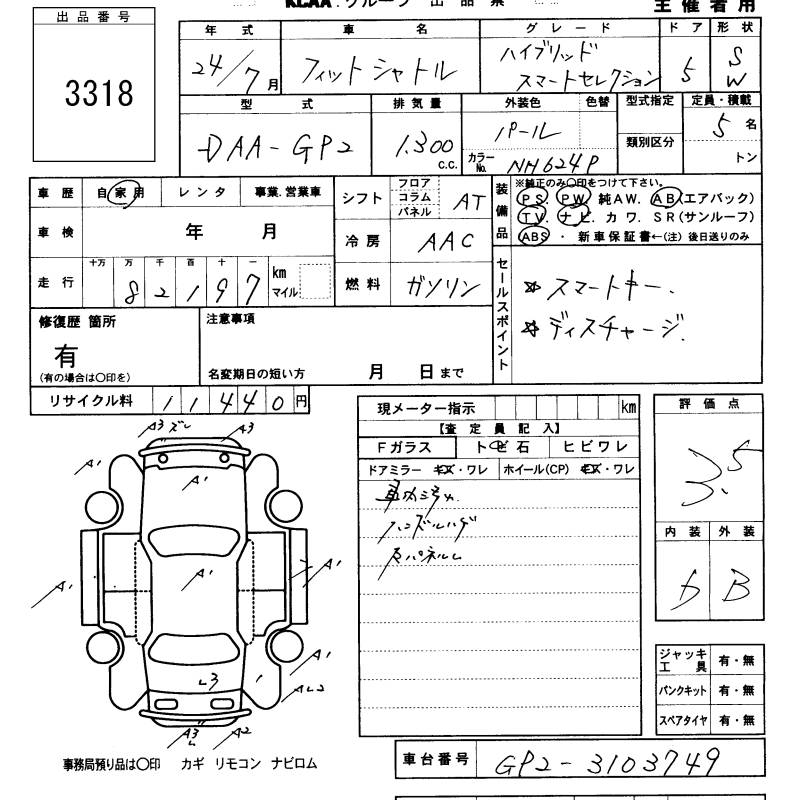 KCAA グループ 出品票 主催者用
出品番号
3318
年式 車名 グレード ドア 形状
24/7月 フィットシャトル ハイブリッド スマートセレクション 5 SW
型式 排気量 外装色 色替 型式指定 定員・積載
DAA-GP2 1,300 C.C. パール 5名
カラーNo. NH624P 類別区分 トン
車歴 自家用 レンタ 事業.営業車
シフト フロア コラム パネル AT
装備品 ※純正のみ○印をつけて下さい。
PS. PW 純AW. AB(エアバック)
TV. ナビ カワ. SR(サンルーフ)
ABS ・ 新車保証書←(注) 後日送りのみ
車検 年 月
冷房 AAC
走行 十万 万 千 百 十 一
82197 km マイル
燃料 ガソリン
セールスポイント
☆スマートキー.
☆ディスチャージ.
修復歴 箇所
有
(有の場合は○印を)
注意事項
名変期日の短い方 月 日まで
リサイクル料 11440円
現メーター指示 km
【査定員記入】
Fガラス トビ石 ヒビワレ
ドアミラー キズ・ワレ ホイール(CP) キズ・ワレ
車内汚れ
ハンドルハゲ
評価点
3.5
内装 外装
B
A3 ズレ A3
A1 A1
A1 A1 A1
A1
L3 AL2
A3 L A2
ジャッキ工具 有・無
パンクキット 有・無
スペアタイヤ 有・無
車台番号 GP2-3103749
事務局預り品は○印 カギ リモコン ナビロム